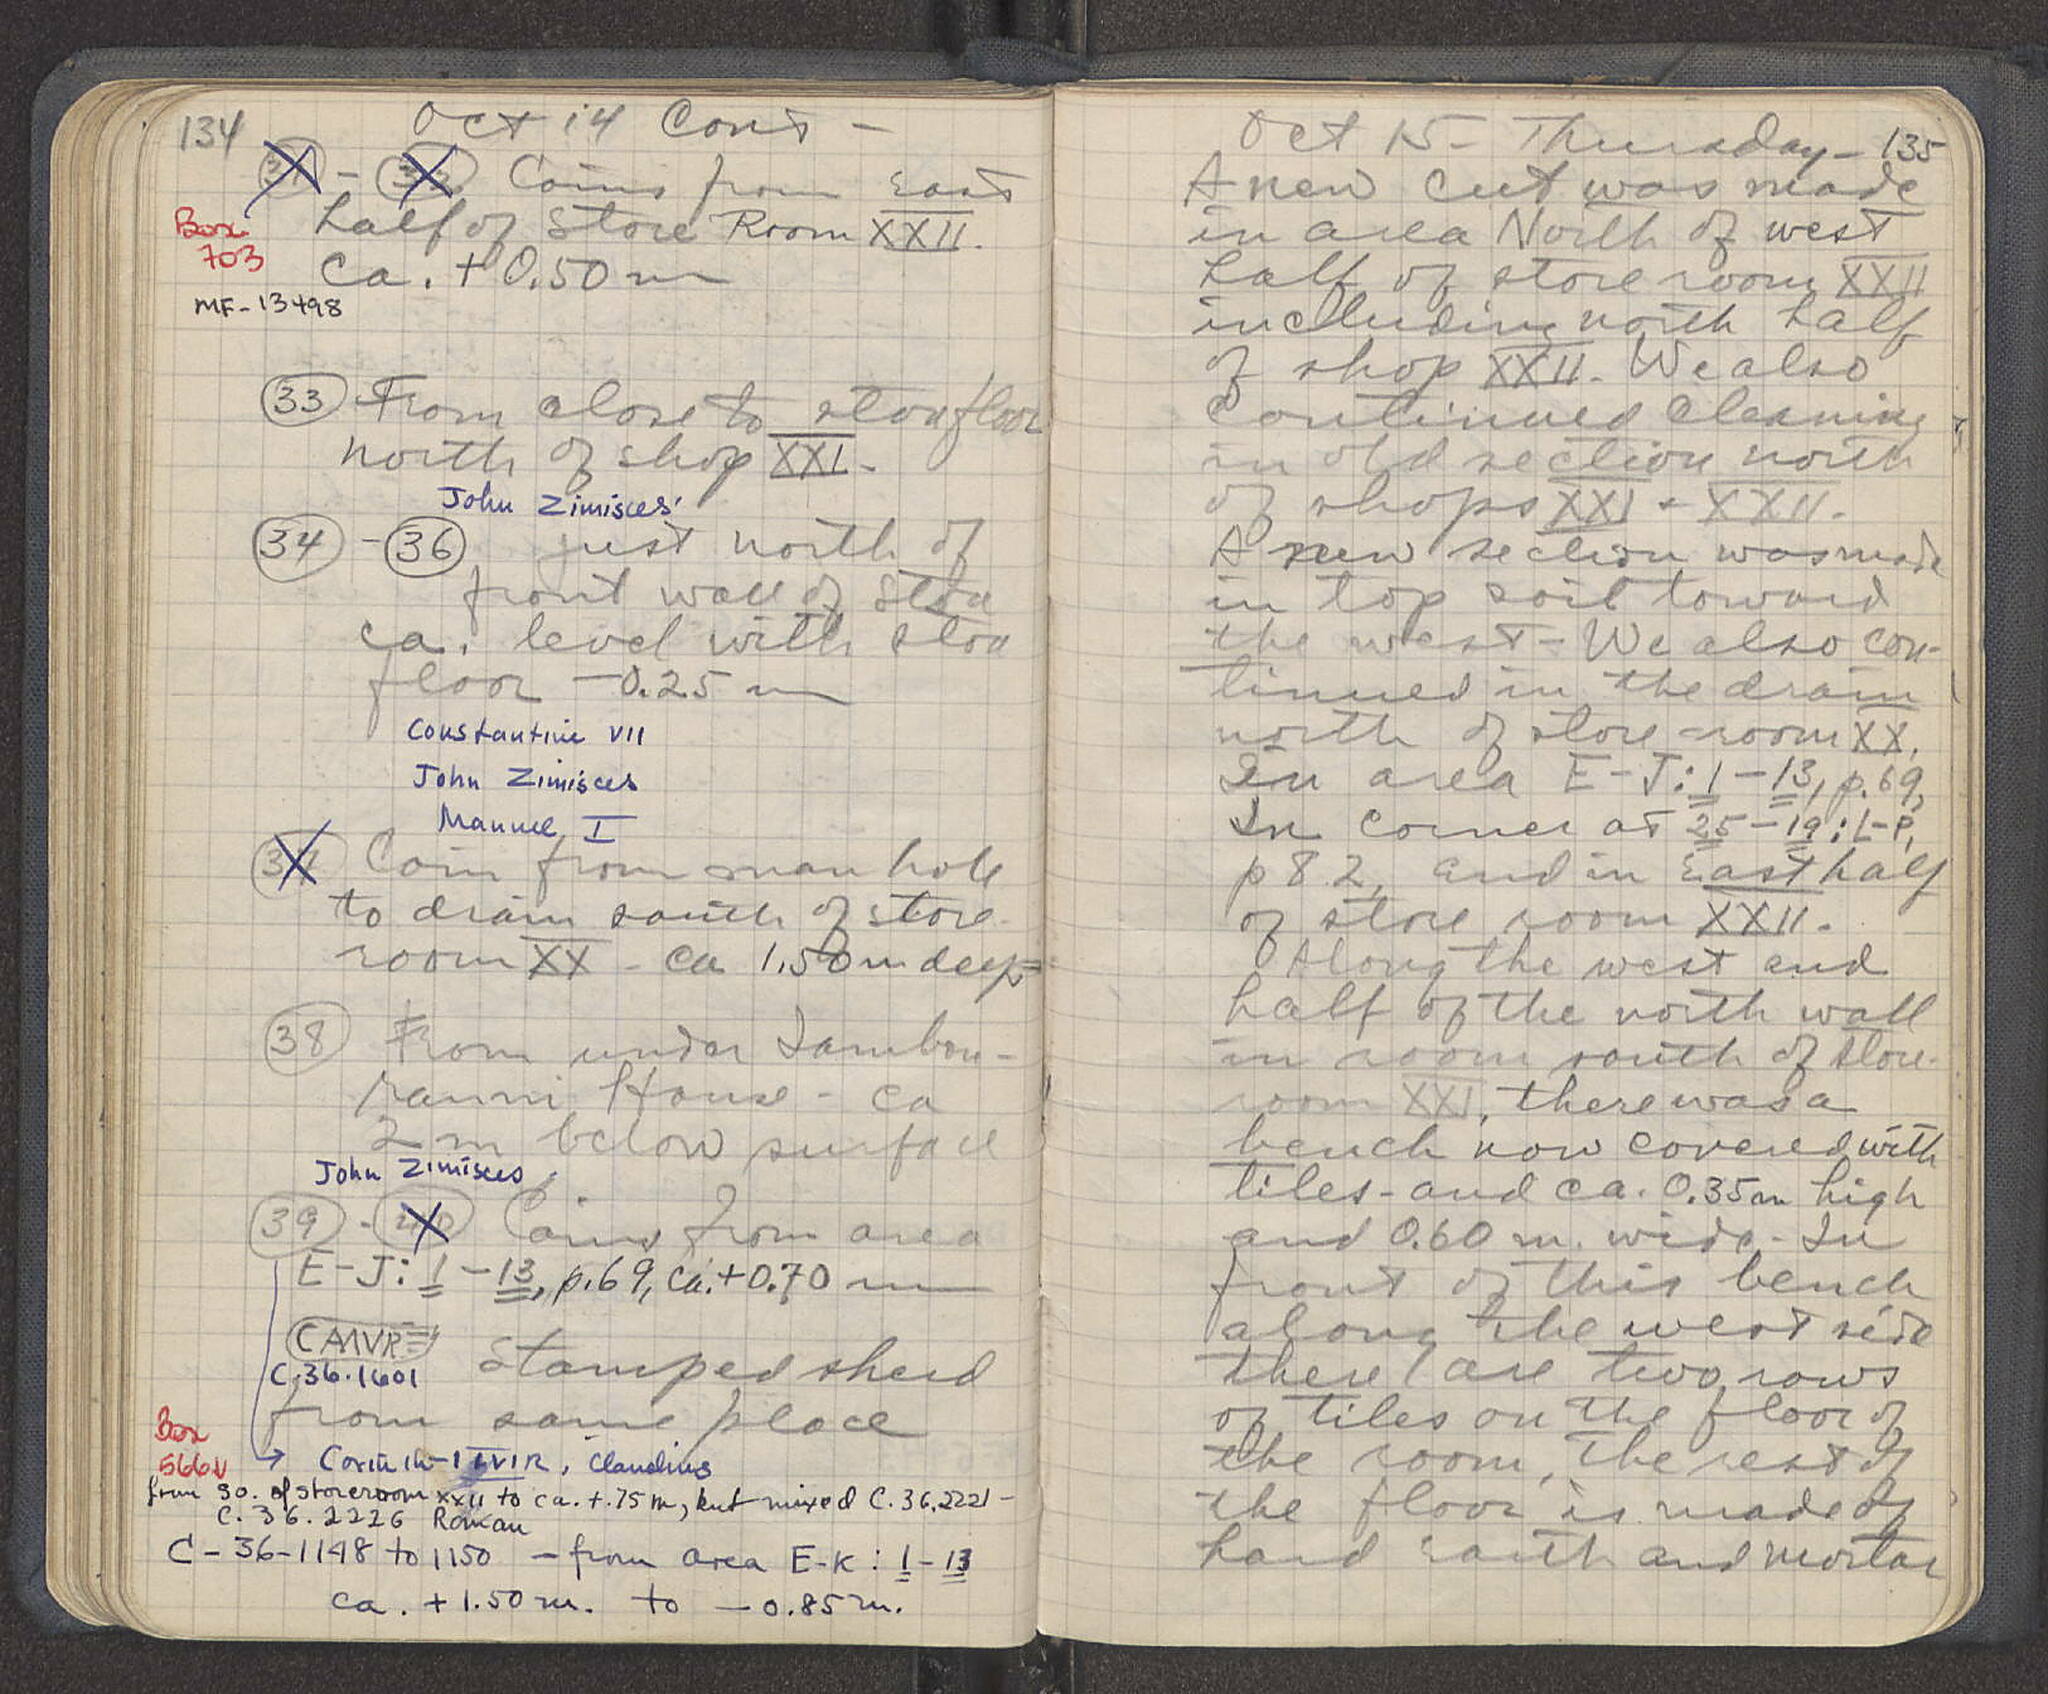 134
Oct 14 Cont -
31 - 32 Coins from east
half of Store Room XXII.
Box
703
ca. + 0.50 m
MF-13498
33 From close to stoa floor
north of shop XXI.
John Zimisces
34 - 36 just north of
front wall of Stoa
ca. level with stoa
floor - 0.25 m
Constantine VII
John Zimisces
Manuel I
37 Coin from man hole
to drain south of store
room XX - ca 1.50 m deep
38 From under Lambou-
ranni House - ca
2 m below surface
John Zimisces
39 - 40 Coins from area
E-J: 1-13, p.69, ca. +0.70 m
CAMVR
C.36.1601
Stamped sherd
from same place
Box
566
→ Corinth - IIVIR, Claudius
from so. of storeroom XXII to ca. +.75m, but mixed C.36.2221 -
C.36.2226 Roman
C-36-1148 to 1150 - from area E-K: 1-13
ca. +1.50 m. to -0.85 m.
Oct 15 - Thursday - 135
A new cut was made
in area North of west
half of store room XXII
including north half
of shop XXII. We also
continued cleaning
in old section north
of shops XXI + XXII.
A new section was made
in top soil toward
the west - We also con-
tinued in the drain
north of store-room XX.
In area E-J: 1-13, p.69,
In corner at 25-19: L-P,
p 82, and in East half
of store room XXII.
Along the west end
half of the north wall
in room south of store-
room XXI, there was a
bench now covered with
tiles - and ca. 0.35m high
and 0.60 m. wide - In
front of this bench
along the west side
there are two rows
of tiles on the floor of
the room, the rest of
the floor is made of
hard earth and mortar